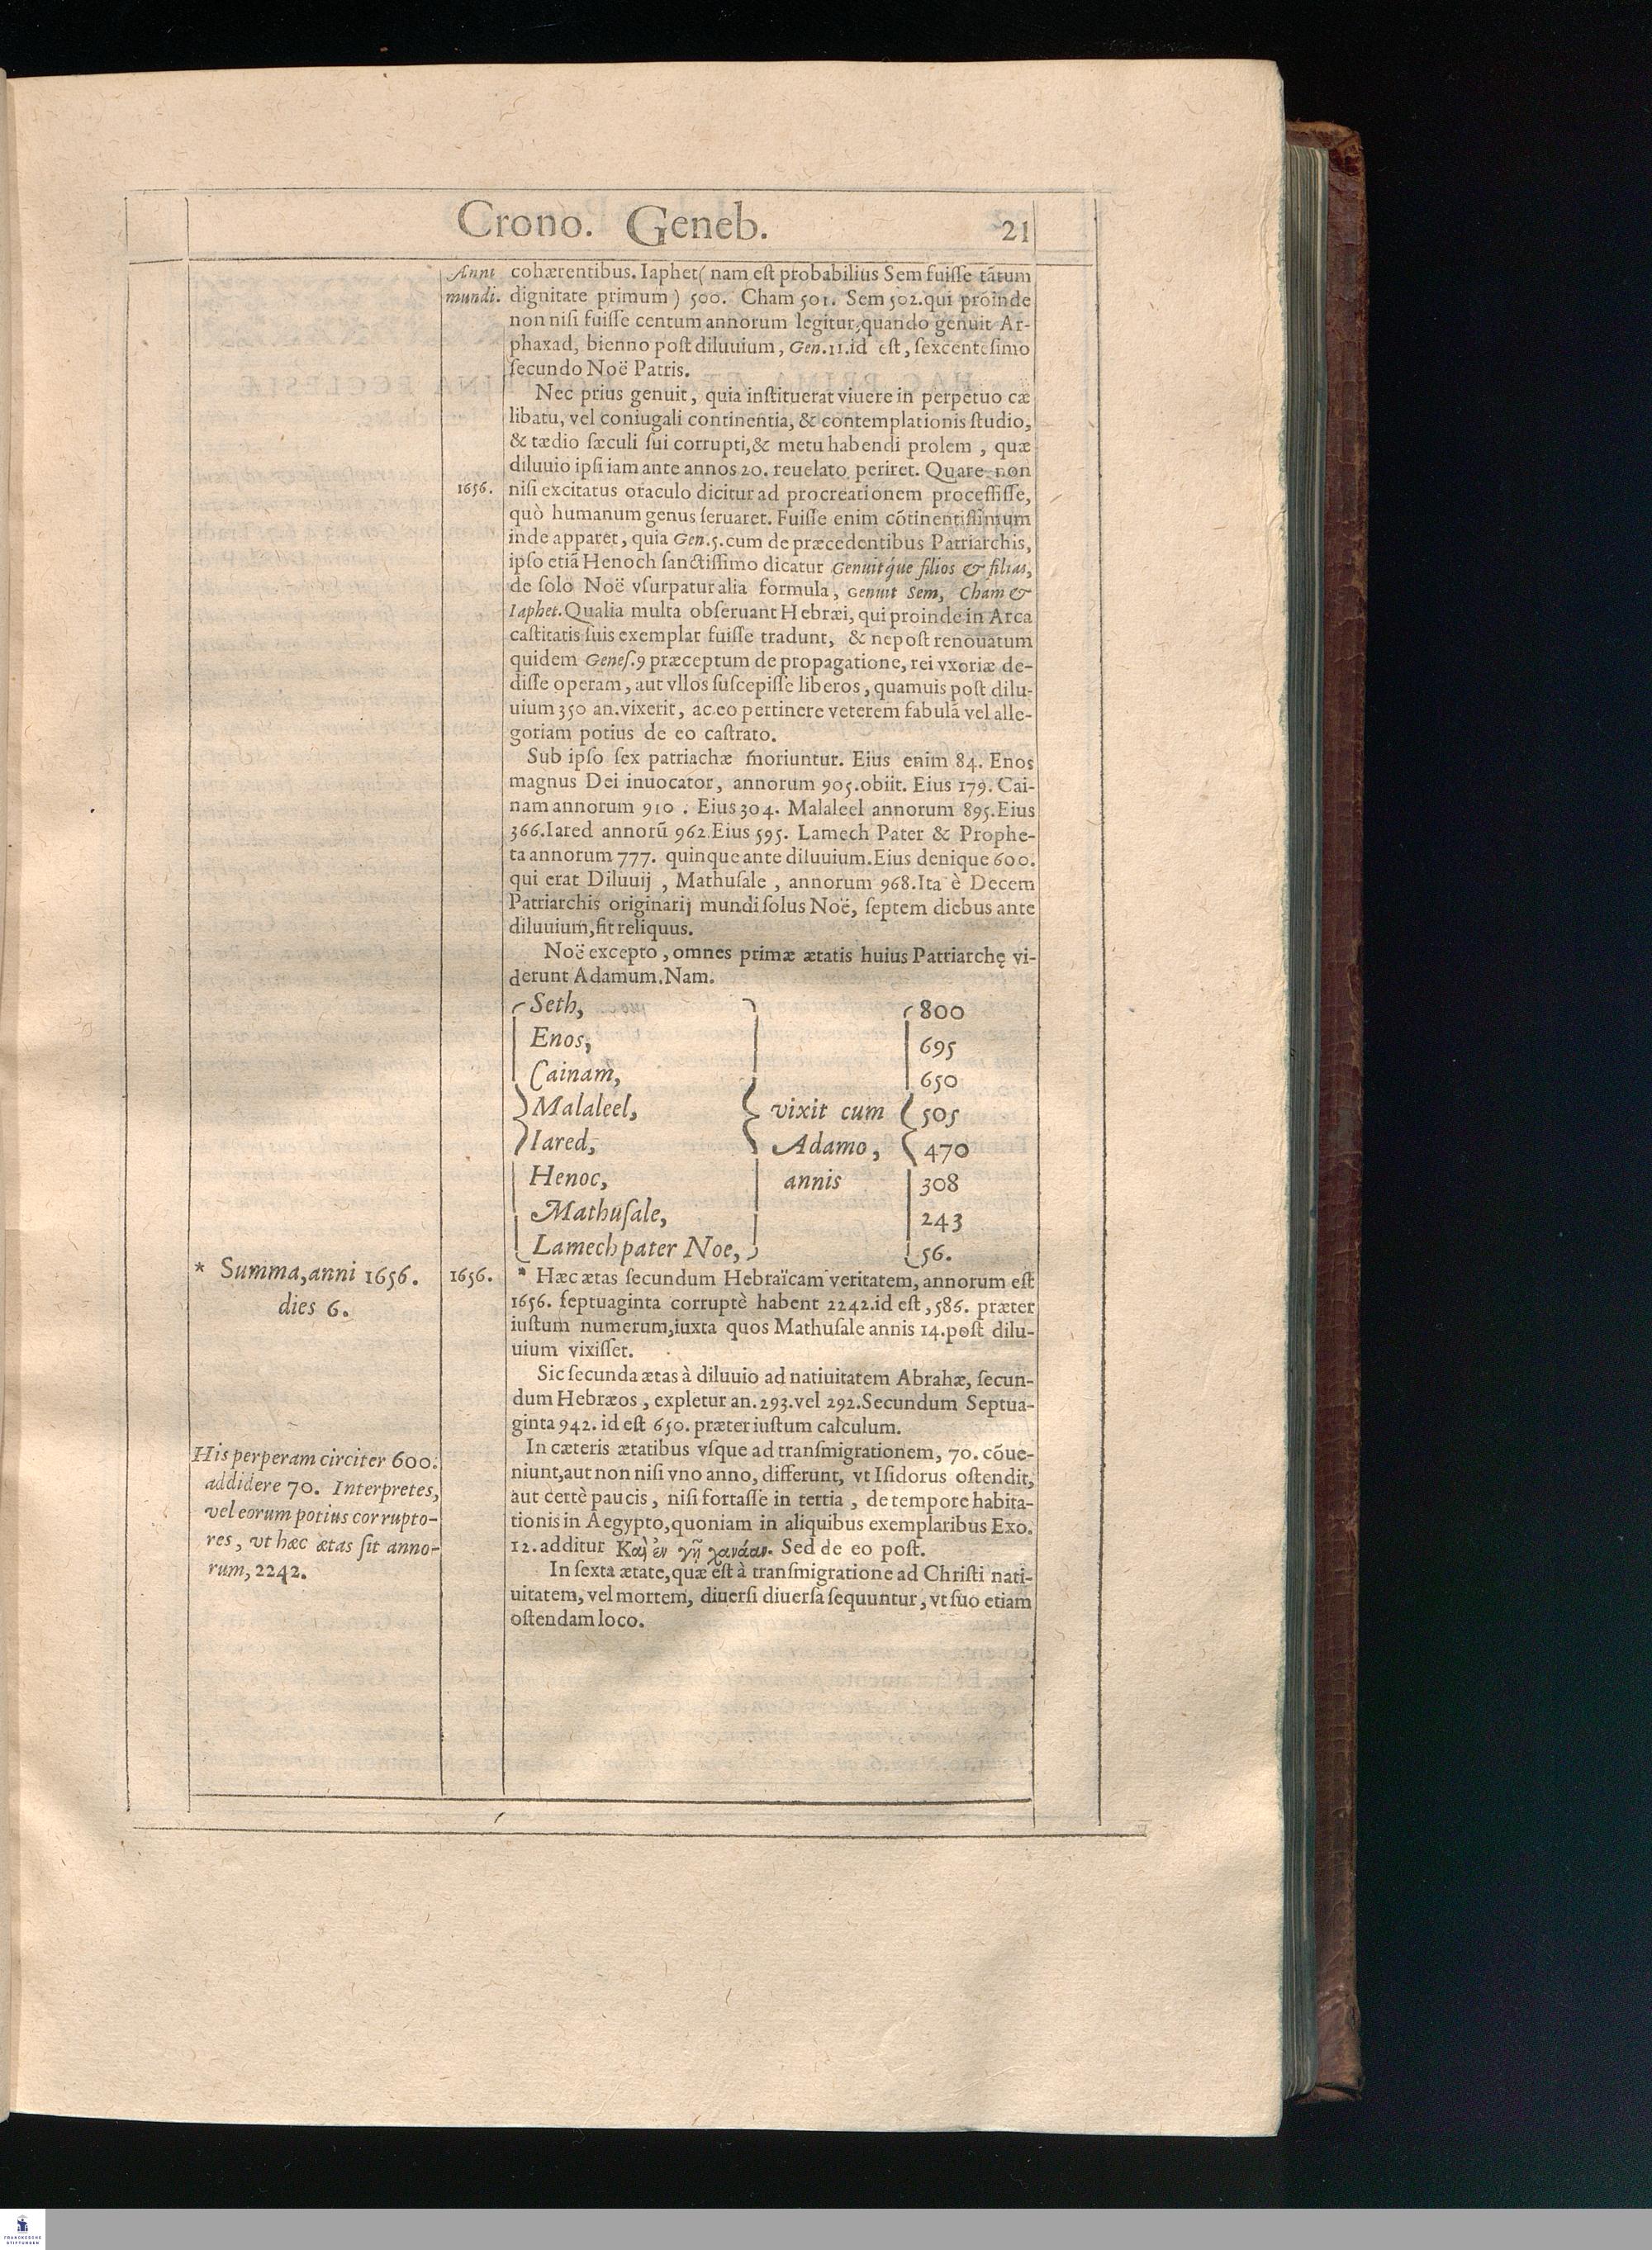 Crono. Geneb.
21
Anni
mundi.
cohærentibus. Iaphet( nam est probabilius Sem fuisse tãtum
dignitate primum ) 500. Cham 501. Sem 502.qui proinde
non nisi fuisse centum annorum legitur,quando genuit Ar-
phaxad, bienno post diluuium, Gen.11.id est, sexcentesimo
secundo Noë Patris.
Nec prius genuit, quia instituerat viuere in perpetuo cæ
libatu, vel coniugali continentia, & contemplationis studio,
& tædio sæculi sui corrupti,& metu habendi prolem , quæ
diluuio ipsi iam ante annos 20. reuelato periret. Quare non
1656.
nisi excitatus oraculo dicitur ad procreationem processisse,
quò humanum genus seruaret. Fuisse enim cõtinentissimum
inde apparet, quia Gen.5.cum de præcedentibus Patriarchis,
ipso etiã Henoch sanctissimo dicatur Genuitq́ue filios & filias,
de solo Noë vsurpatur alia formula, Genuit Sem, Cham &
Iaphet.Qualia multa obseruant Hebræi, qui proinde in Arca
castitatis suis exemplar fuisse tradunt, & nepost renouatum
quidem Genes.9 præceptum de propagatione, rei vxoriæ de-
disse operam, aut vllos suscepisse liberos, quamuis post dilu-
uium 350 an.vixerit, ac eo pertinere veterem fabulã vel alle-
goriam potius de eo castrato.
Sub ipso sex patriachæ moriuntur. Eius enim 84. Enos
magnus Dei inuocator, annorum 905.obiit. Eius 179. Cai-
nam annorum 910 . Eius 304. Malaleel annorum 895.Eius
366.Iared annorũ 962.Eius 595. Lamech Pater & Prophe-
ta annorum 777. quinque ante diluuium.Eius denique 600.
qui erat Diluuij , Mathusale , annorum 968.Ita è Decem
Patriarchis originarij mundi solus Noë, septem diebus ante
diluuium,fit reliquus.
Noë excepto, omnes primæ ætatis huius Patriarchę vi-
derunt Adamum.Nam.
Seth, 800
Enos, 695
Cainam, 650
Malaleel, vixit cum 505
Iared, Adamo, 470
Henoc, annis 308
Mathusale, 243
Lamech pater Noe, 56.
* Summa,anni 1656.
dies 6.
1656.
* Hæc ætas secundum Hebraïcam veritatem, annorum est
1656. septuaginta corruptè habent 2242.id est, 586. præter
iustum numerum,iuxta quos Mathusale annis 14.post dilu-
uium vixisset.
Sic secunda ætas à diluuio ad natiuitatem Abrahæ, secun-
dum Hebræos, expletur an.293.vel 292.Secundum Septua-
ginta 942. id est 650. præter iustum calculum.
His perperam circiter 600.
addidere 70. Interpretes,
vel eorum potius corrupto-
res, vt hæc ætas sit anno-
rum, 2242.
In cæteris ætatibus vsque ad transmigrationem, 70. cõue-
niunt,aut non nisi vno anno, differunt, vt Isidorus ostendit,
aut certè paucis, nisi fortasse in tertia , de tempore habita-
tionis in Aegypto,quoniam in aliquibus exemplaribus Exo.
12.additur Καὶ ἐν γῇ χανάαν. Sed de eo post.
In sexta ætate,quæ est à transmigratione ad Christi nati-
uitatem, vel mortem, diuersi diuersa sequuntur, vt suo etiam
ostendam loco.
FRANCKESCHE
STIFTUNGEN